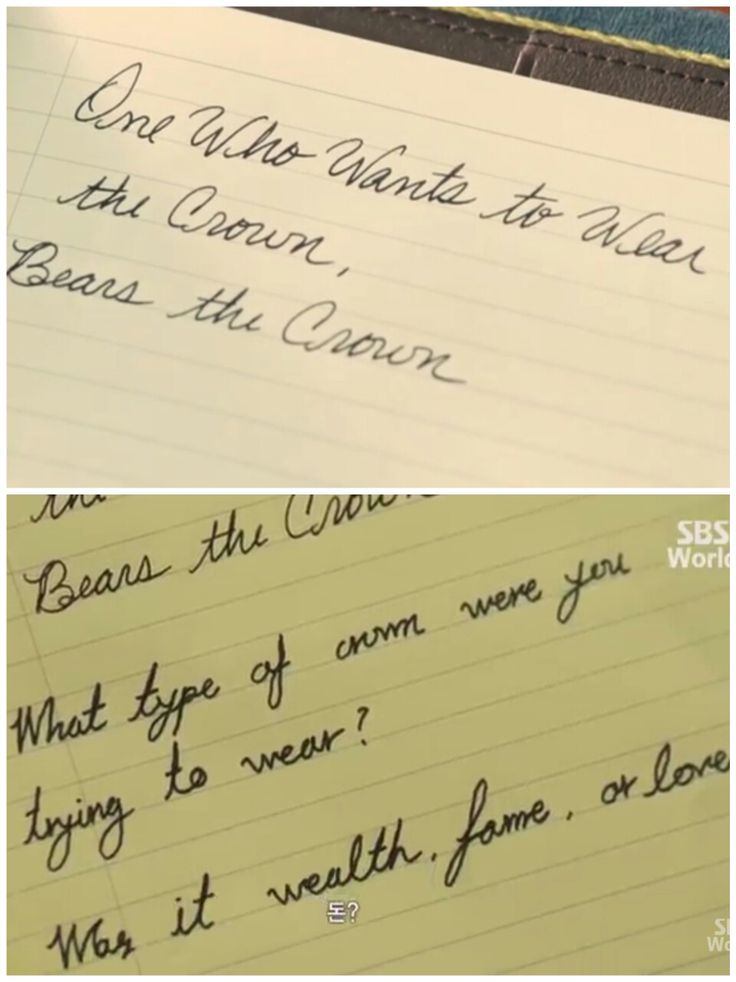 One Who Wants to Wear
the Crown,
Bears the Crown
the
Bears the Crown
SBS
World
What type of crown were you
trying to wear?
Was it wealth, fame, or love
돈?